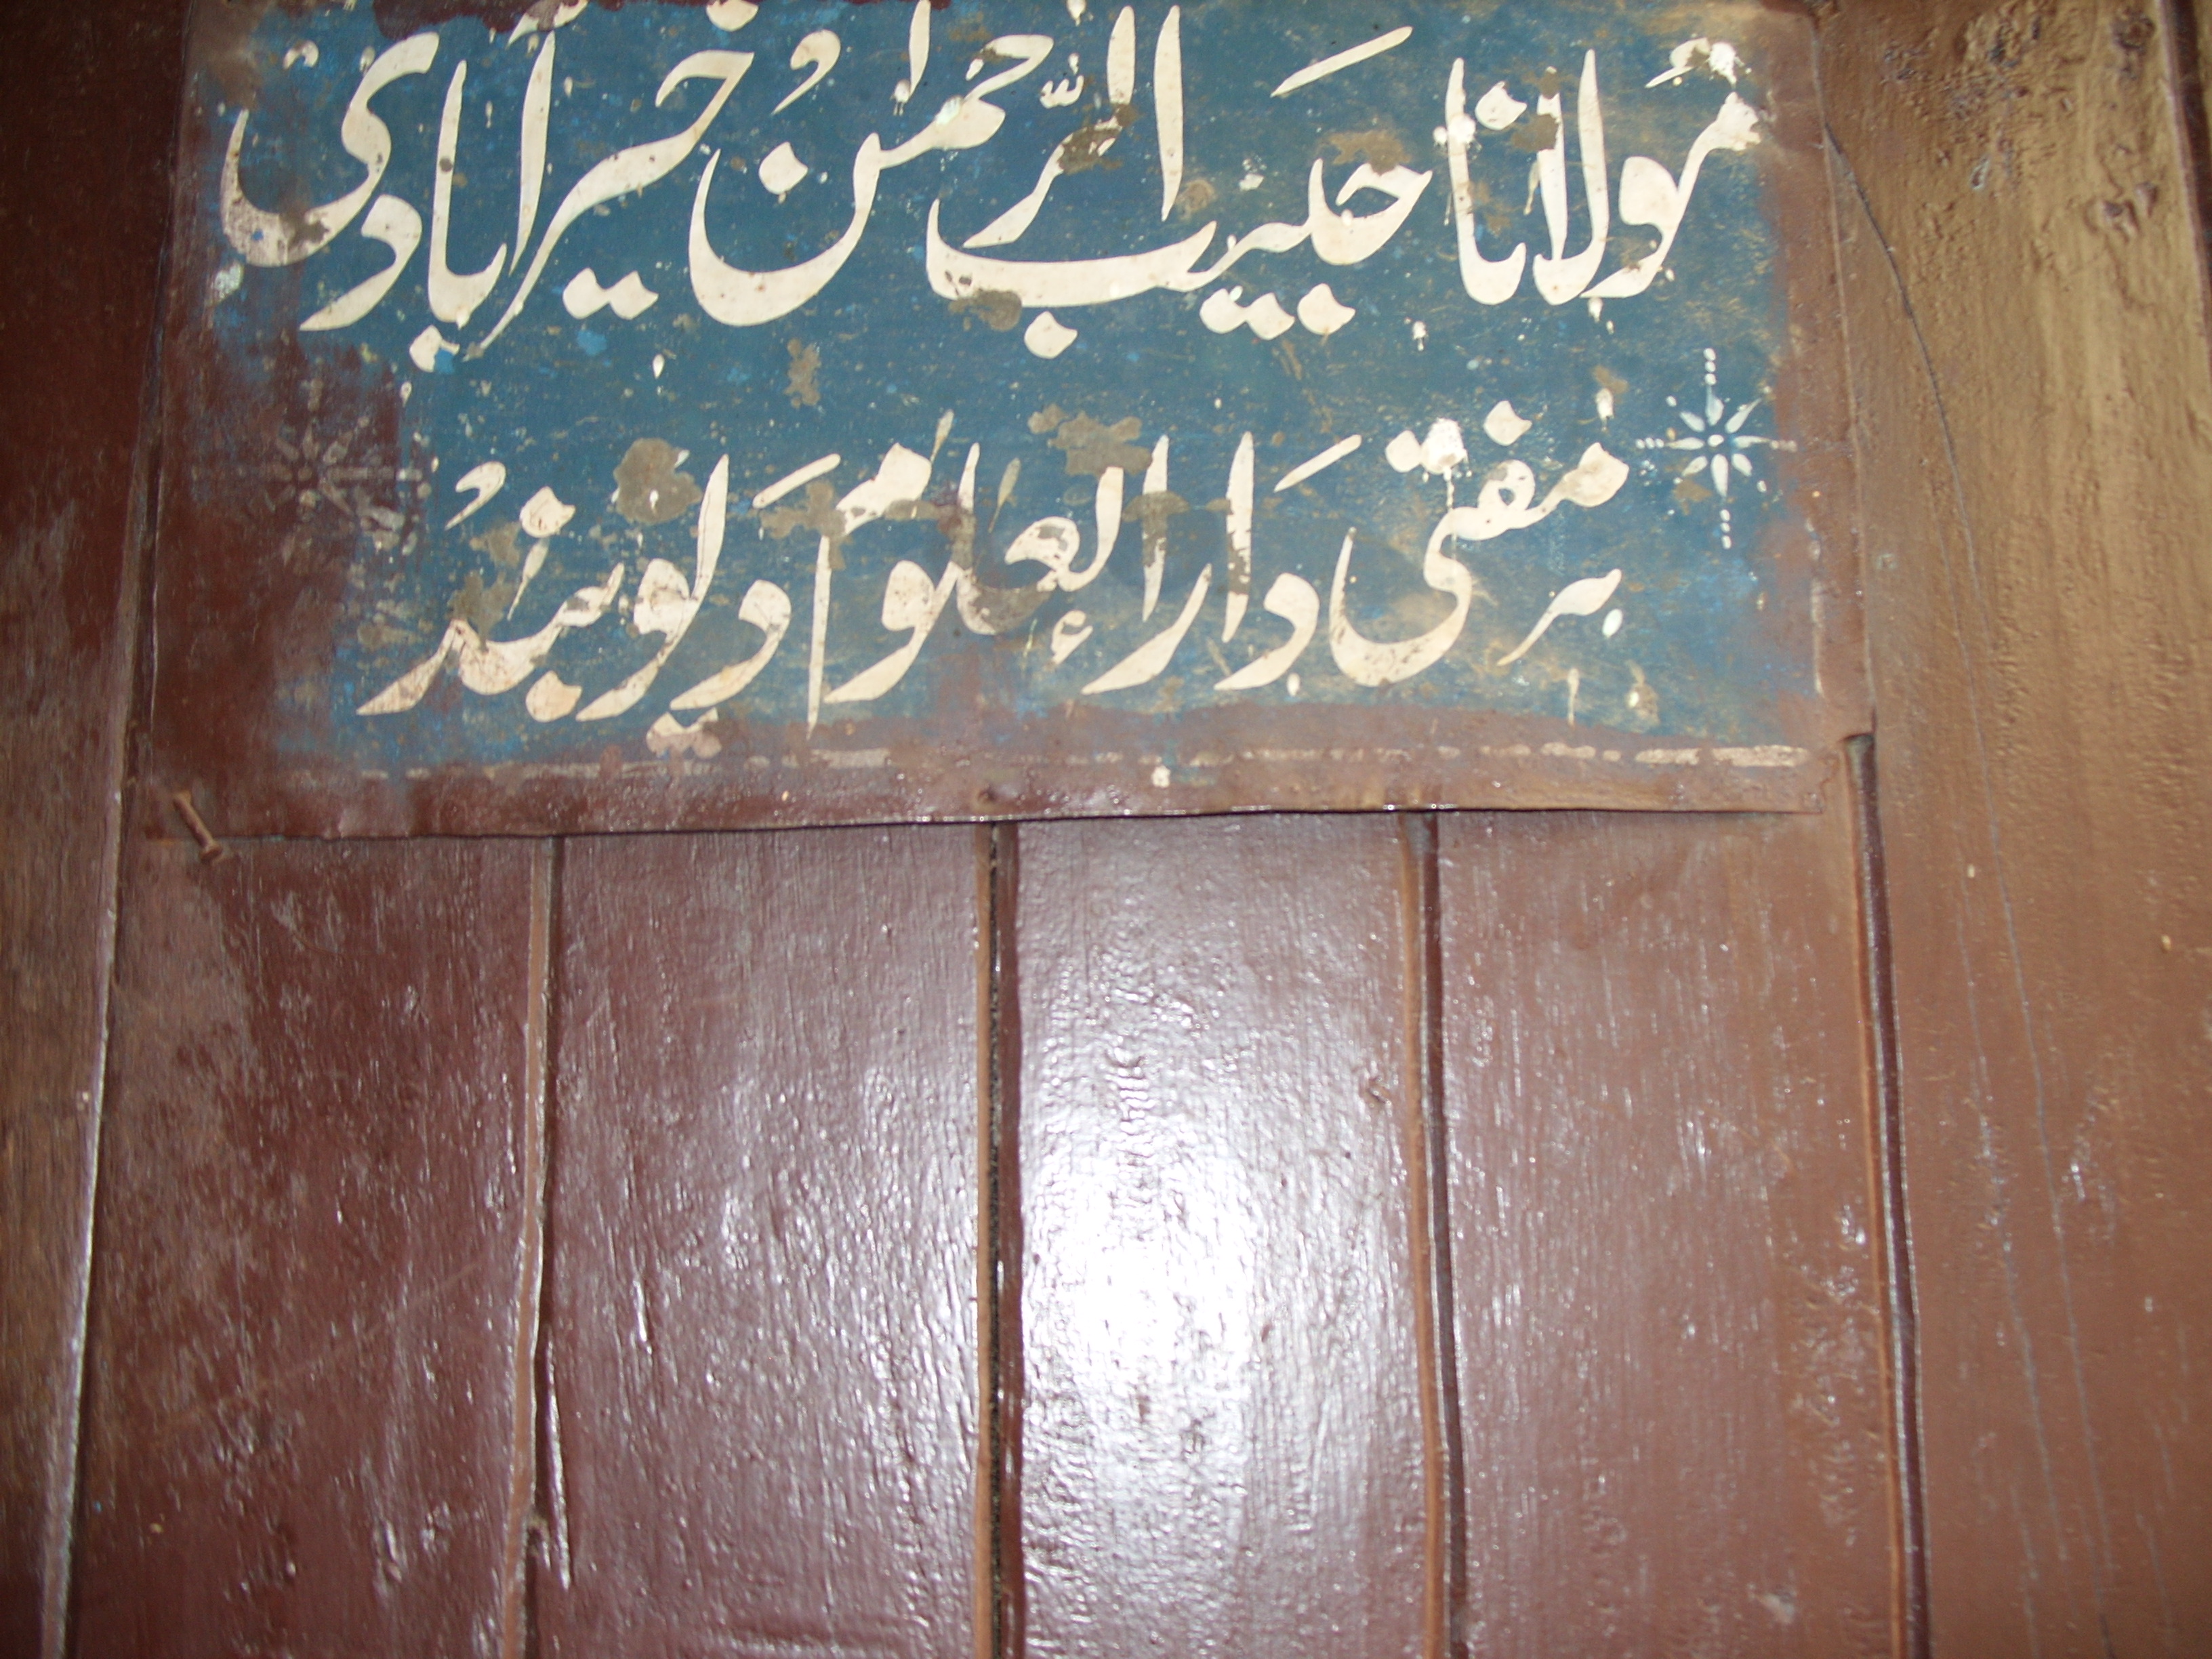 مولانا حبیب الرحمٰن خیرآبادی
مفتی دارالعلوم دیوبند